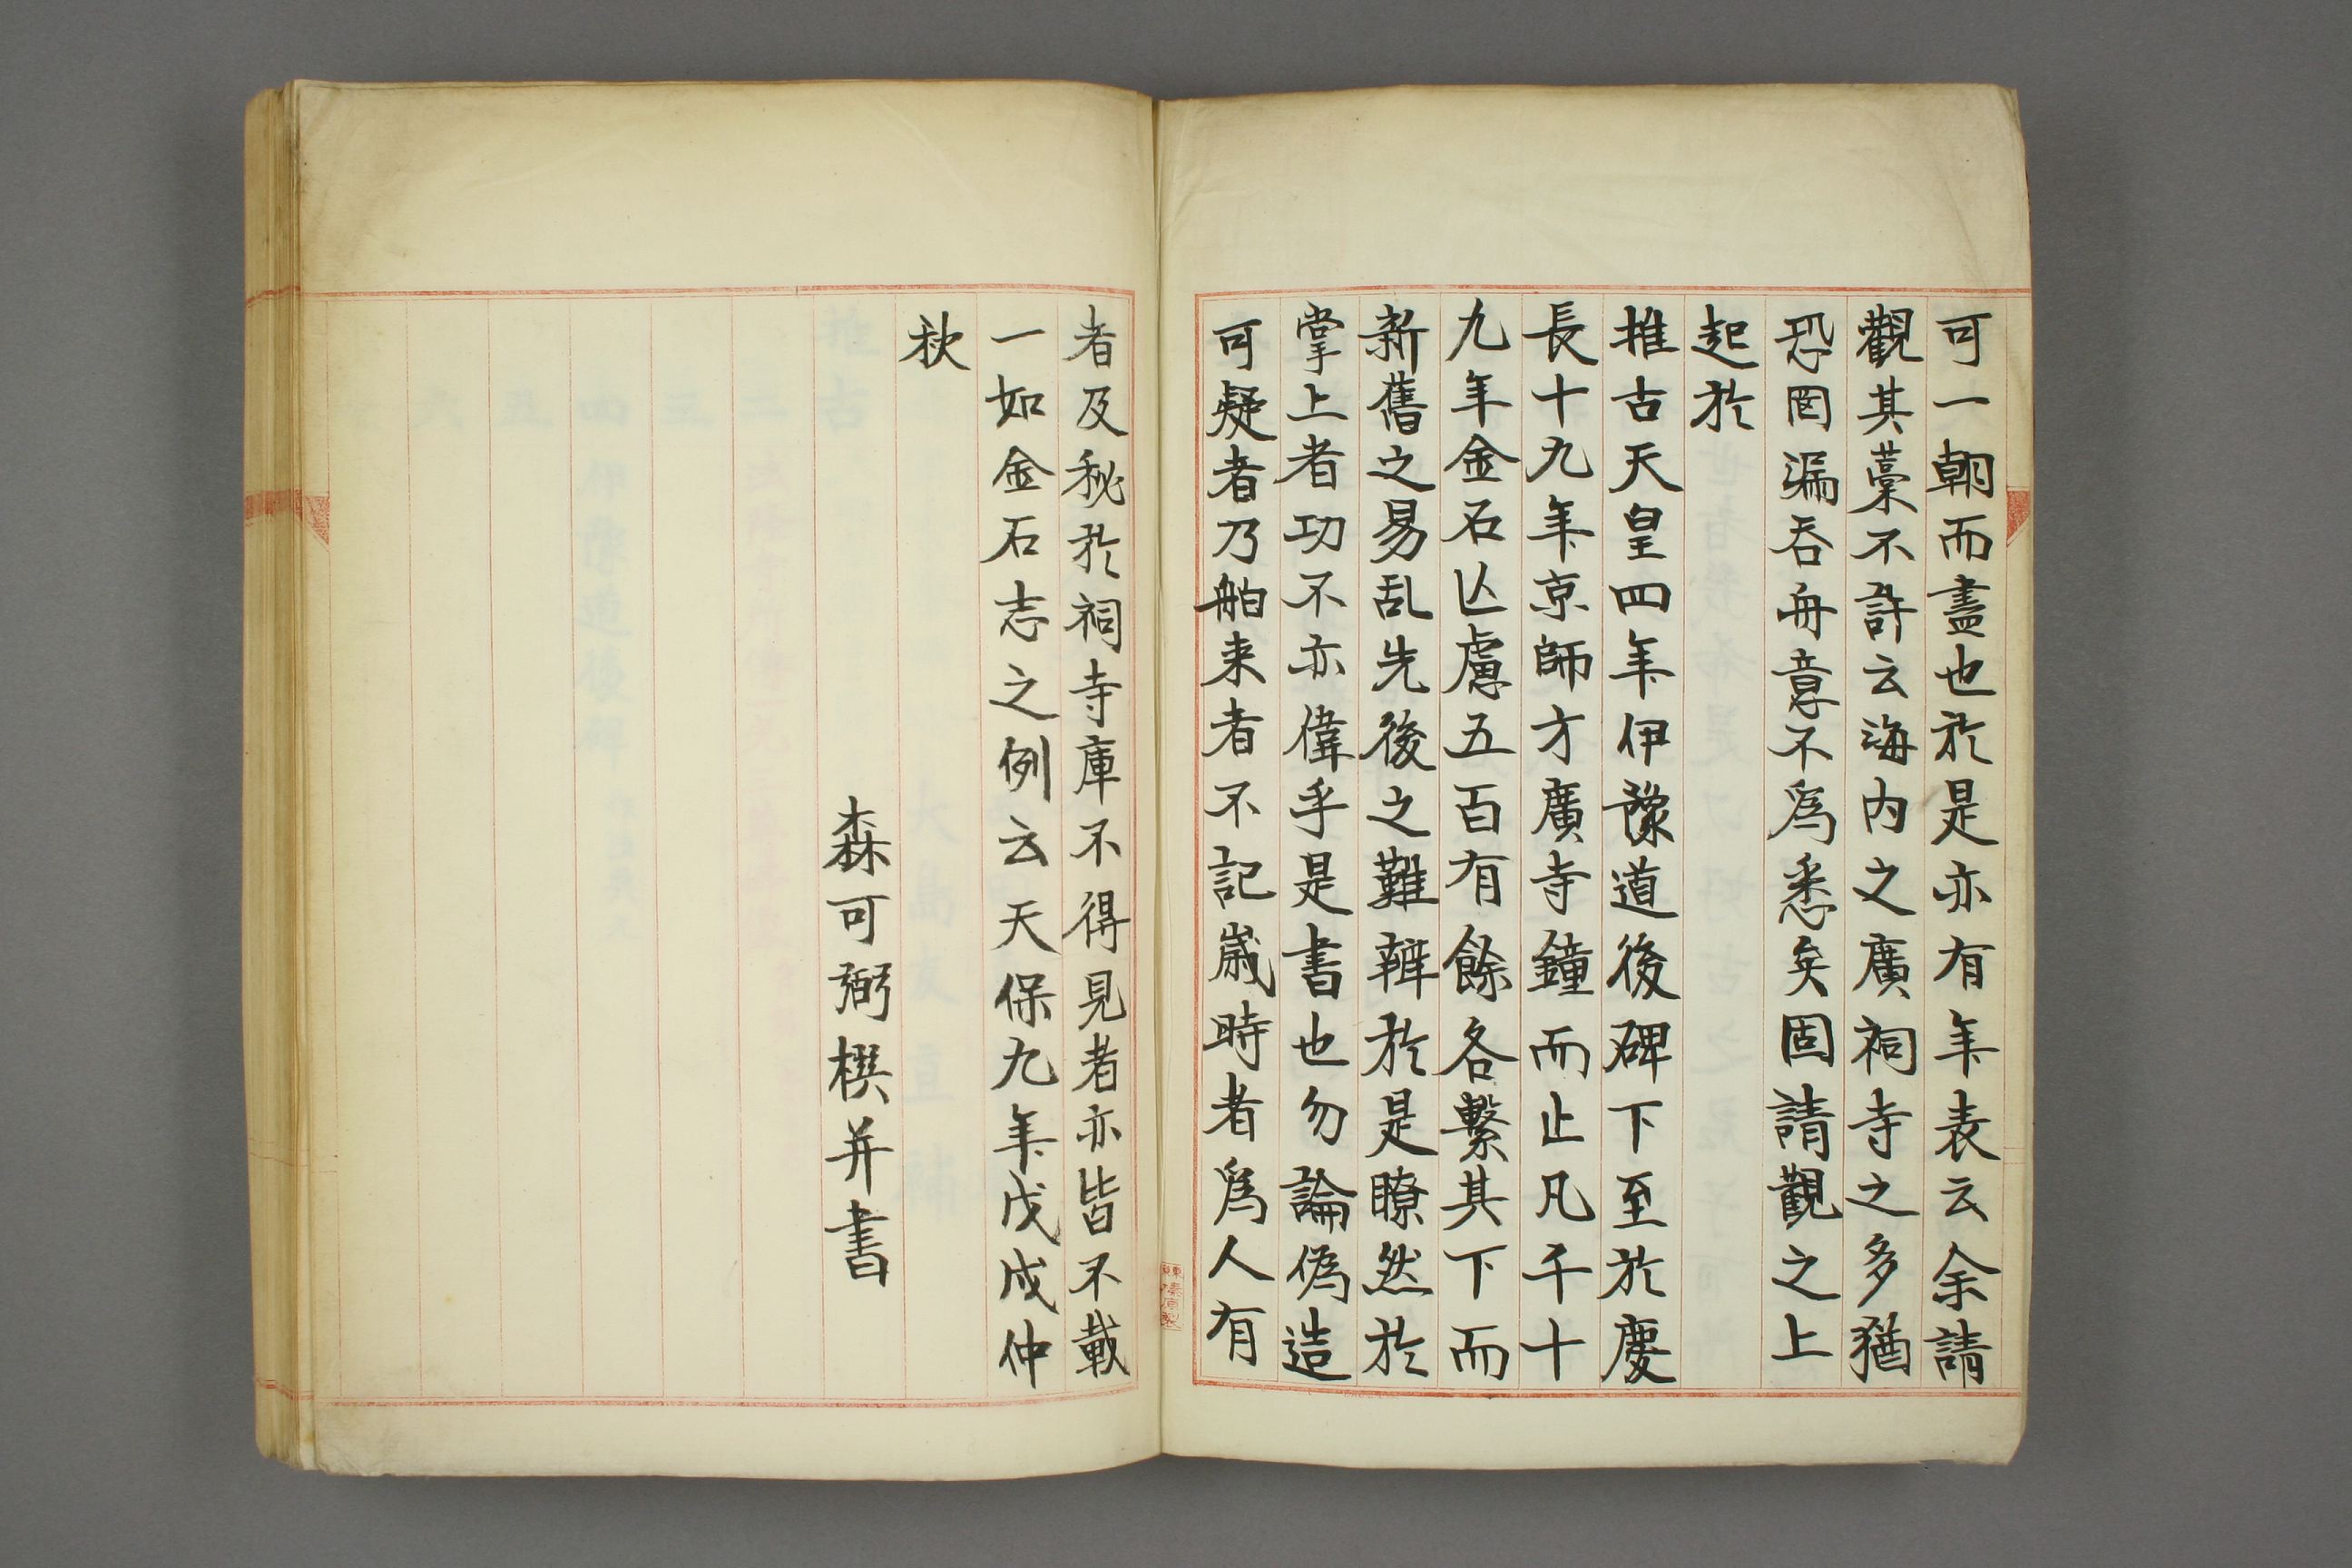 可一朝而盡也於是亦有年表云余請
觀其藁不許云海内之廣祠寺之多猶
恐罔漏吞舟意不爲悉矣固請觀之上
起於
推古天皇四年伊豫道後碑下至於慶
長十九年京師方廣寺鐘而止凡千十
九年金石亾慮五百有餘各繫其下而
新舊之易乱先後之難辨於是瞭然於
掌上者功不亦偉乎是書也勿論偽造
可疑者乃舶来者不記歲時者爲人有
者及秘於祠寺庫不得見者亦皆不載
一如金石志之例云天保九年戊戌仲
秋
森可弼撰并書